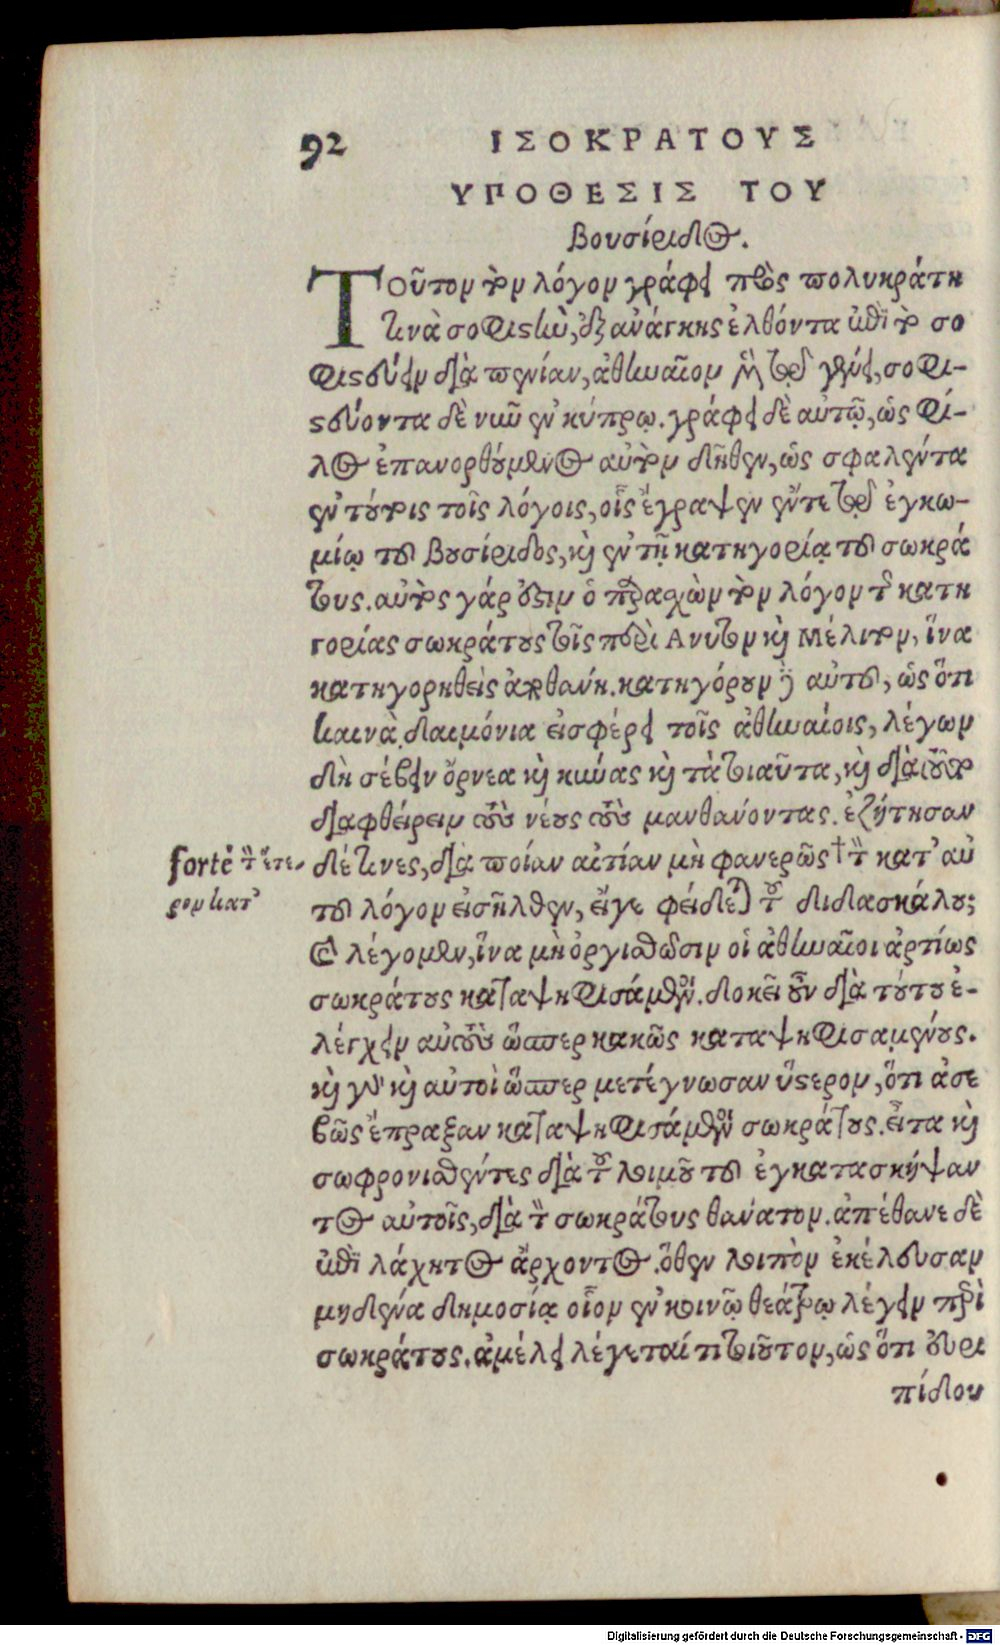 92 ΙΣΟΚΡΑΤΟΥΣ
ΥΠΟΘΕΣΙΣ ΤΟΥ
Βουσίριδος.
Τοῦτον τὸν λόγον γράφει πρὸς πολυκράτη
τινὰ σοφιστὴν, ἐξ ἀνάγκης ἐλθόντα ἐπὶ τὸ σο
φιστεύειν διὰ πενίαν, ἀθηναῖον μὲν τῷ γένει, σοφι-
στεύοντα δὲ νῦν ἐν κύπρῳ. γράφει δὲ αὐτῷ, ὡς φί-
λος ἐπανορθούμενος αὐτὸν δῆθεν, ὡς σφαλέντα
ἐν τούτοις τοῖς λόγοις, οἷς ἔγραψεν ἔν τε τῷ ἐγκω-
μίῳ τοῦ βουσίριδος, καὶ ἐν τῇ κατηγορίᾳ τοῦ σωκρά
τους. αὐτὸς γάρ ἐστιν ὁ παρασχὼν τὸν λόγον τῆς κατη
γορίας σωκράτους τοῖς περὶ Ἄνυτον καὶ Μέλιτον, ἵνα
κατηγορηθεὶς ἀποθάνῃ. κατηγόρουν δὲ αὐτοῦ, ὡς ὅτι
καινὰ δαιμόνια εἰσφέρει τοῖς ἀθηναίοις, λέγων
δὴ σέβειν ὄρνεα καὶ κύνας καὶ τὰ τοιαῦτα, καὶ διὰ τοῦτο
διαφθείρειν τοὺς νέους τοὺς μανθάνοντας. ἐζήτησαν
δέ τινες, διὰ ποίαν αἰτίαν μὴ φανερῶς † τὸν κατ' αὐ
forte τὸν ἕτε-
ρον κατ'
τοῦ λόγον εἰσῆλθεν, εἴγε φείδεται τοῦ διδασκάλου;
καὶ λέγομεν, ἵνα μὴ ὀργισθῶσιν οἱ ἀθηναῖοι ἀρτίως
σωκράτους καταψηφισάμενοι. δοκεῖ οὖν διὰ τούτου ἐ-
λέγχειν αὐτοὺς ὥσπερ κακῶς καταψηφισαμένους.
καὶ γὰρ καὶ αὐτοὶ ὥσπερ μετέγνωσαν ὕστερον, ὅτι ἀσε
βῶς ἔπραξαν καταψηφισάμενοι σωκράτους. εἶτα καὶ
σωφρονισθέντες διὰ τοῦ λοιμοῦ τοῦ ἐγκατασκήψαν
τος αὐτοῖς, διὰ τὸν σωκράτους θάνατον. ἀπέθανε δὲ
ἐπὶ λάχητος ἄρχοντος. ὅθεν λοιπὸν ἐκέλευσαν
μηδένα δημοσίᾳ οἷον ἐν κοινῷ θεάτρῳ λέγειν περὶ
σωκράτους. ἀμέλει λέγεταί τι τοιοῦτον, ὡς ὅτι εὐρι
πίδου
Digitalisierung gefördert durch die Deutsche Forschungsgemeinschaft - DFG